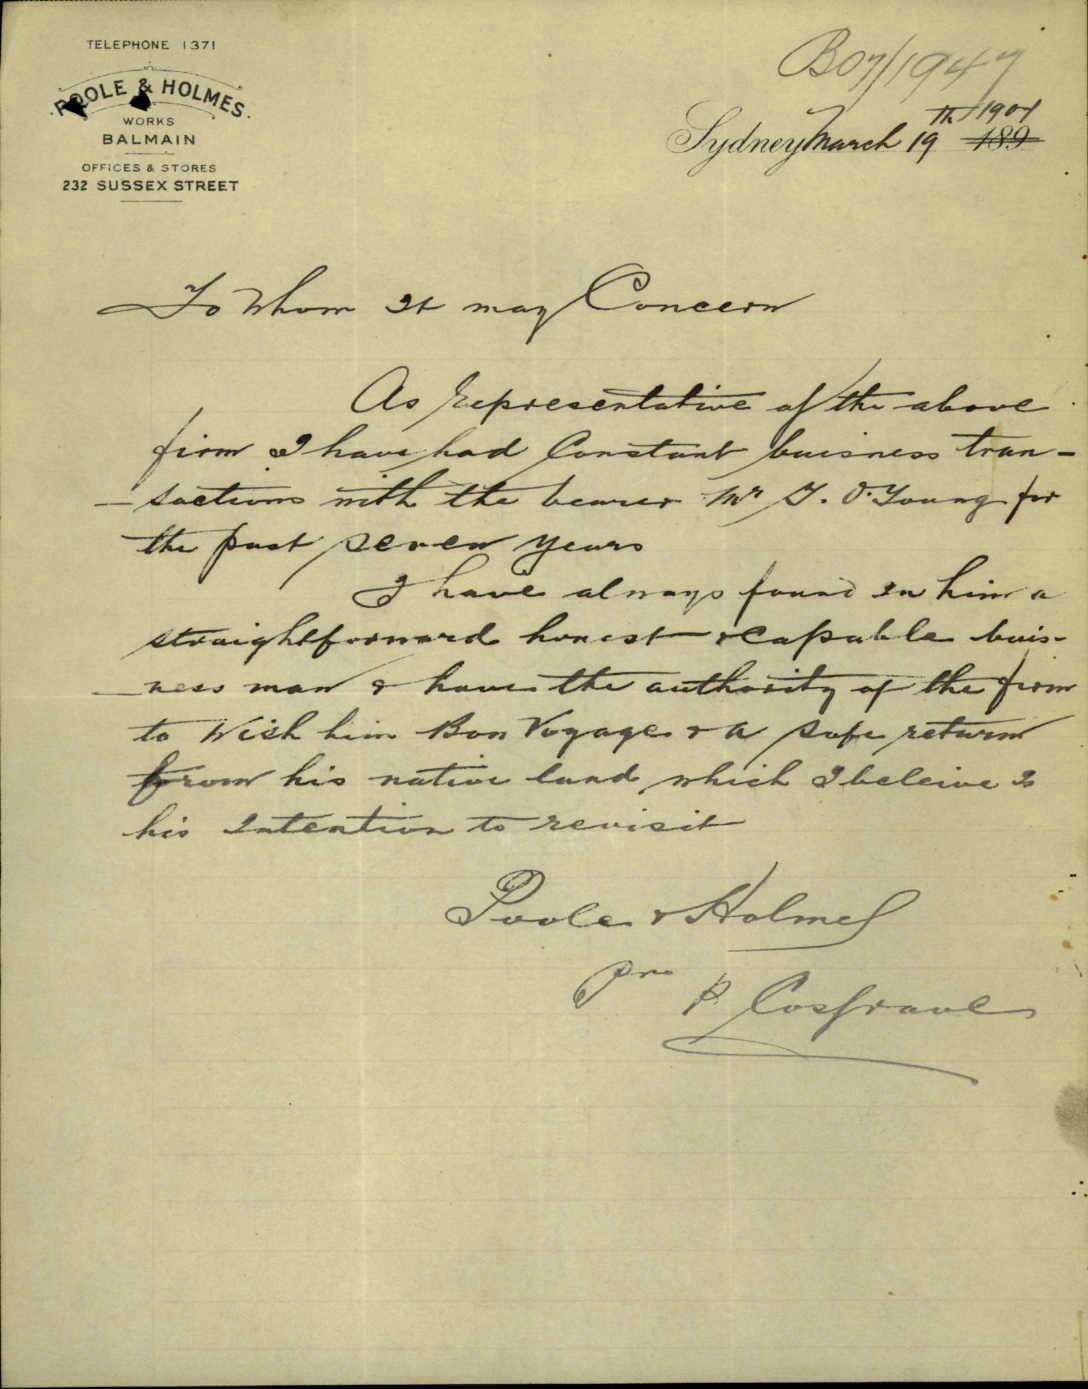 TELEPHONE 1371
POOLE & HOLMES.
WORKS
BALMAIN
OFFICES & STORES
232 SUSSEX STREET
B07/1947
Sydney March 19th 1907 189
To Whom It may Concern
As representative of the above
firm I have had Constant buisness tran-
-sactions with the bearer Mr G. O. Young for
the past seven years
I have always found in him a
straightforward honest & capable buis-
-ness man & have the authority of the firm
to Wish him Bon Voyage & a safe return
from his native land which I beleive is
his Intention to revisit
Poole & Holmes
Pro P. Cosgrave